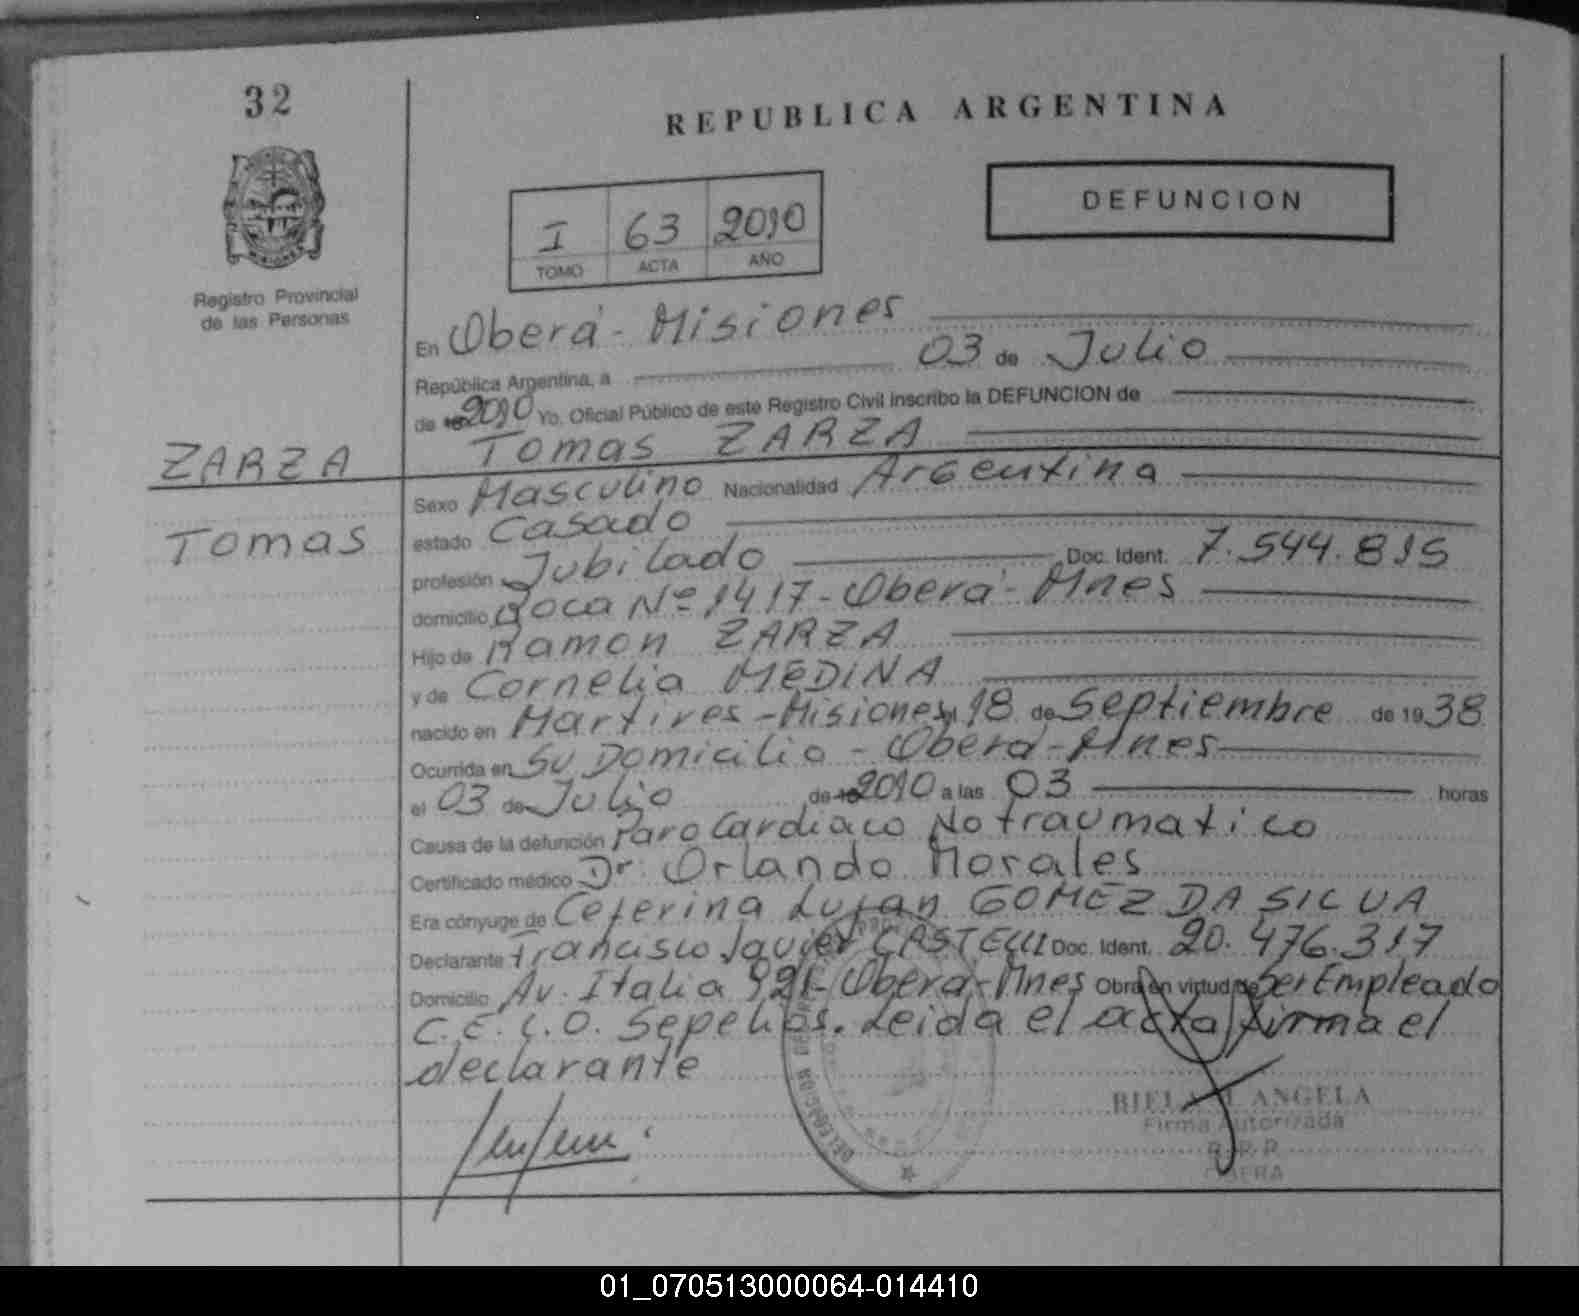 32
REPUBLICA ARGENTINA
DEFUNCION
I 63 2010
TOMO ACTA AÑO
Registro Provincial
de las Personas
En Oberá - Misiones
República Argentina, a 03 de Julio
de 19 2010 Yo, Oficial Público de este Registro Civil inscribo la DEFUNCION de
Tomas ZARZA
ZARZA
Tomas
Sexo Masculino Nacionalidad Argentina
estado Casado
profesión Jubilado Doc. Ident. 7.544.815
domicilio Roca Nº 1417 - Oberá - Mnes
Hijo de Ramon ZARZA
y de Cornelia MEDINA
nacido en Martires - Misiones, el 18 de Septiembre de 19 38
Ocurrida en Su Domicilio - Oberá - Mnes
el 03 de Julio de 19 2010 a las 03 horas
Causa de la defunción Paro Cardiaco No traumatico
Certificado médico Dr. Orlando Morales
Era cónyuge de Ceferina Lujan GOMEZ DA SILVA
Declarante Francisco Javier CASTELLI Doc. Ident. 20.476.317
Domicilio Av. Italia 921 - Oberá - Mnes Obra en virtud de Ser Empleado
C.E.L.O. Sepelios. Leida el acta firma el
declarante
ANGELA
Firma Autorizada
R.P.P.
OBERA
DELEGACION
01_070513000064-014410